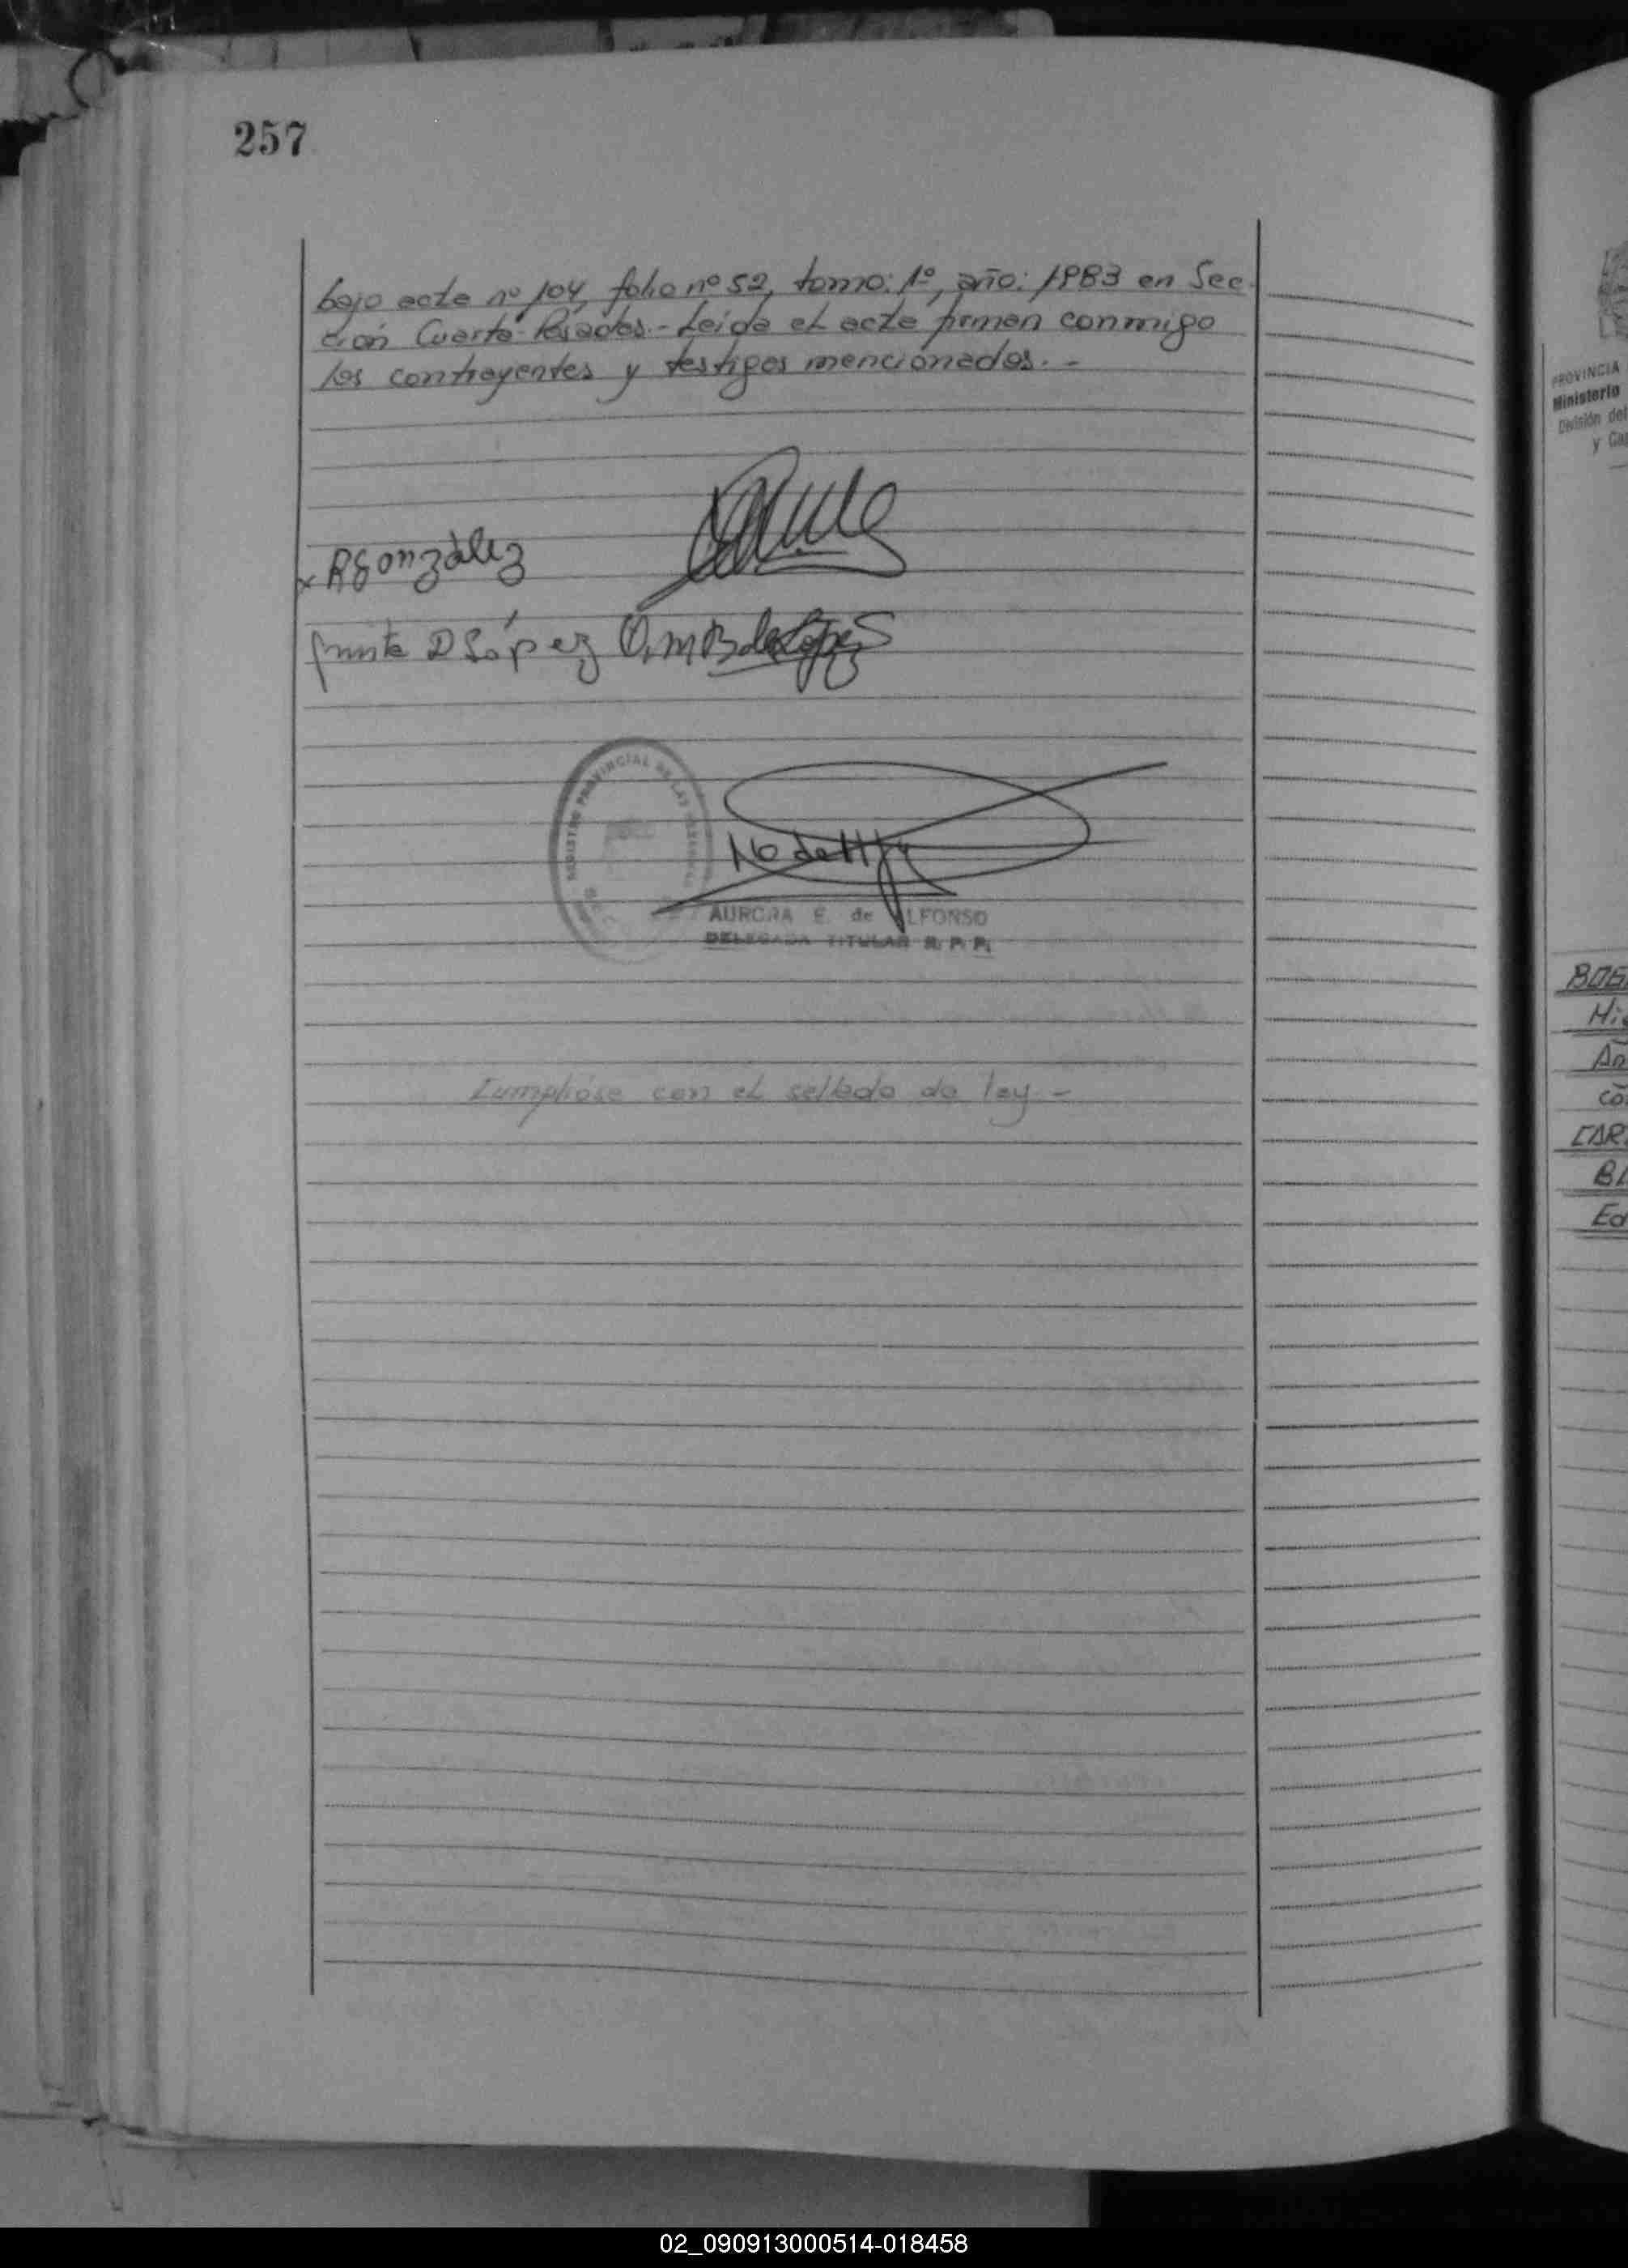 257
bajo acta nº 104, folio nº 52, tomo: 1º, año: 1983 en Sec-
ción Cuarta Posadas.- Leída el acta firman conmigo
los contrayentes y testigos mencionados.-
x RGonzález
D López O.M.B. de López
REGISTRO PROVINCIAL DE LAS PERSONAS
AURORA E. de ALFONSO
DELEGADA TITULAR R. P. P.
Cumplióse con el sellado de ley -
PROVINCIA
Ministerio
División del
y Ca
BOG
Hi
Añ
co
CAR
BL
Ed
02_090913000514-018458